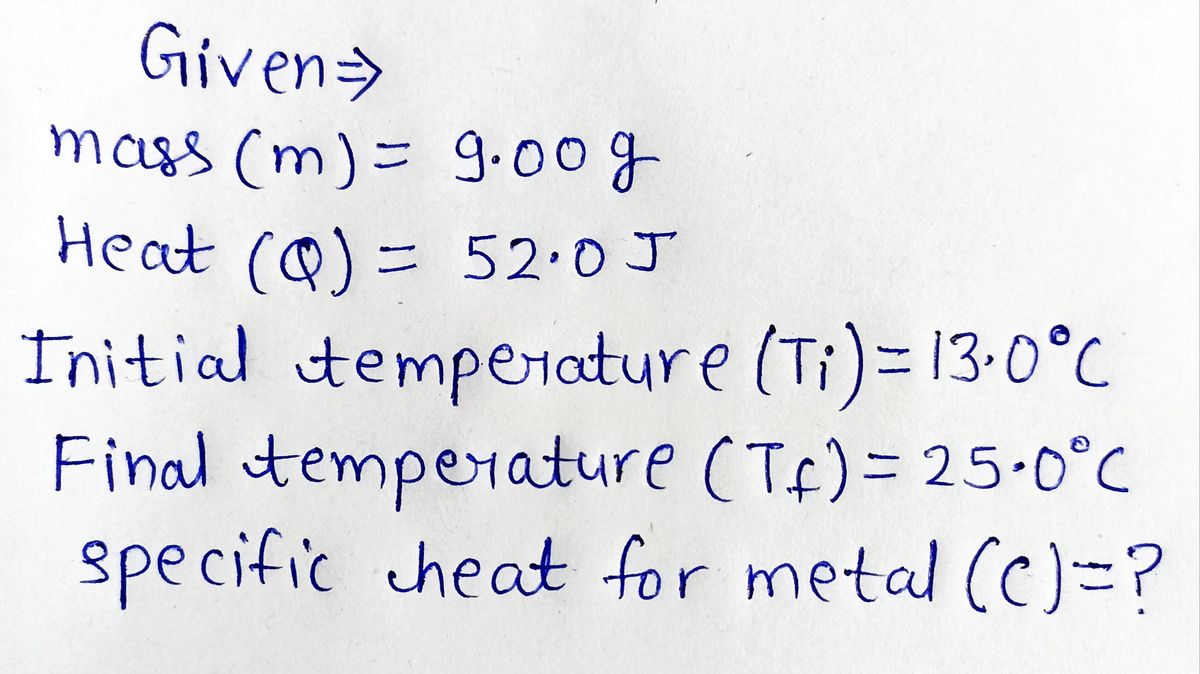 Given⇒
mass (m) = 9.00 g
Heat (Q) = 52.0 J
Initial temperature (Ti) = 13.0°C
Final temperature (Tf) = 25.0°C
specific heat for metal (c) = ?